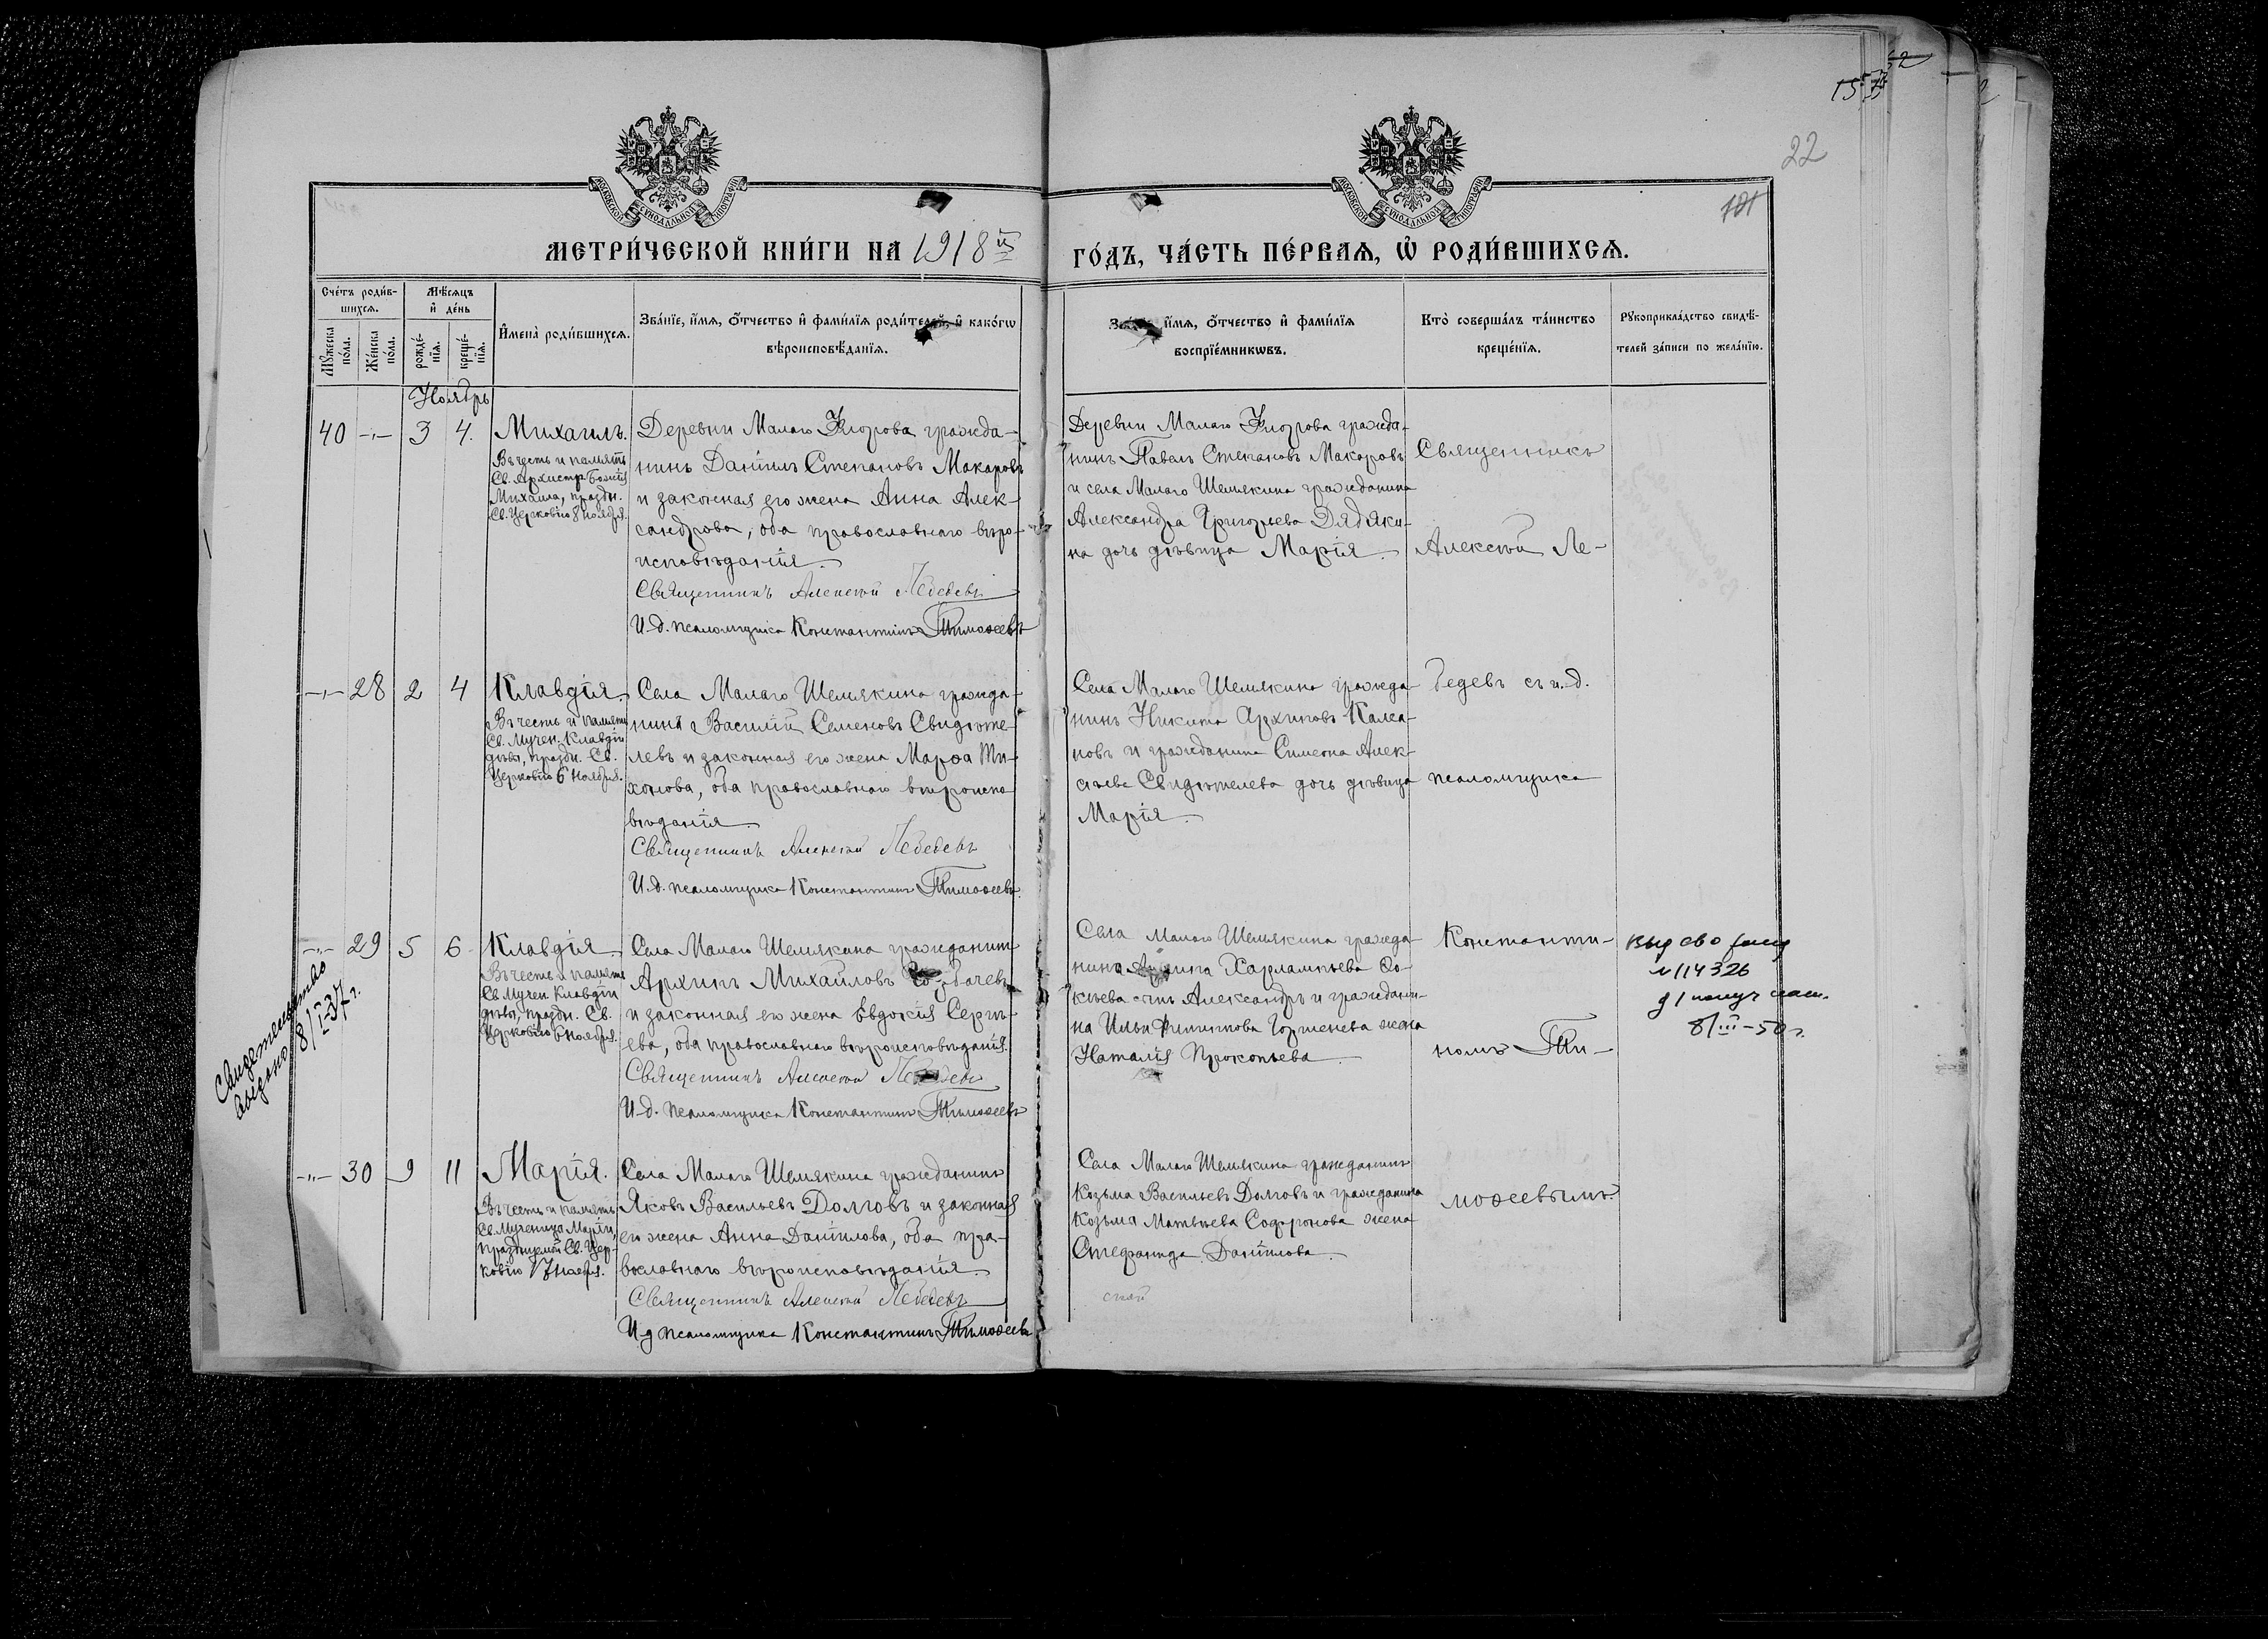 22
МОСКОВСКОЙ СѴНОДАЛЬНОЙ ТИПОГРАФІИ
МОСКОВСКОЙ СѴНОДАЛЬНОЙ ТИПОГРАФІИ
МЕТРИ́ЧЕСКОЙ КНИ́ГИ НА 1918 й
ГО́ДЪ, ЧА́СТЬ ПЕ́РВАѦ, Ѡ РОДИ́ВШИХСѦ.
Счетъ роди́в-
шихсѧ.
Мꙋжеска по́ла.
Же́нска по́ла.
Мѣсѧцъ
и де́нь
рожде́-
нїѧ.
креще́-
нїѧ.
Имена̀ роди́вшихсѧ.
Зва́нїе, и́мѧ, о́тчество и фами́лїѧ роди́телей, и како́гѡ
вѣроисповѣданїѧ.
и́мѧ, о́тчество и фами́лїѧ
воспрїе́мникѡвъ.
Кто̀ соверша́лъ та́инство
креще́нїѧ.
Рꙋкоприкла́дство свидѣ-
телей за́писи по жела́нїю.
Ноябрь
40 -"- 3 4. Михаилъ.
Въ честь и память
Св. Архистр. Божія
Михаила, праздн.
Св. Церковію 8 ноября.
Деревни Малаго Флорова гражда-
нинъ Даніилъ Степановъ Макаровъ
и законная его жена Анна Алек-
сандрова, оба православнаго вѣро-
исповѣданія.
Священникъ Алексѣй Лебедевъ
И.д. псаломщика Константинъ Тимоѳеевъ
Деревни Малаго Флорова гражда-
нинъ Павелъ Степановъ Макаровъ
и села Малаго Шемякина гражданина
Александра Григорьева Дядяки-
на дочь дѣвица Марія.
Священникъ
Алексѣй Ле-
-"- 28 2 4 Клавдія
Въ честь и память
Св. Мучен. Клавдіи
дѣвы, праздн. Св.
Церковію 6 ноября.
Села Малаго Шемякина гражда-
нинъ Василій Семеновъ Свидѣте-
левъ и законная его жена Марѳа Ти-
хонова, оба православнаго вѣроиспо-
вѣданія.
Священникъ Алексѣй Лебедевъ
И.д. псаломщика Константинъ Тимоѳеевъ
Села Малаго Шемякина гражда-
нинъ Никита Архиповъ
и гражданина Симеона Алек-
сѣева Свидѣтелева дочь дѣвица
Марія.
бедевъ съ и.д.
псаломщика
-"- 29 5 6 Клавдія
Въ честь и память
Св. Мучен. Клавдіи
дѣвы, праздн. Св.
Церковію 6 ноября.
Села Малаго Шемякина гражданинъ
Архипъ Михайловъ
и законная его жена Евдокія Сергѣ-
ева, оба православнаго вѣроисповѣданія.
Священникъ Алексѣй Лебедевъ
И.д. псаломщика Константинъ Тимоѳеевъ
Села Малаго Шемякина гражда-
нина Харлампьева Ѳо-
кьева сынъ Александръ и граждани-
на Ильи жена
Наталія Прокопьева.
Константи-
номъ Ти-
№ 114326
8/III-50 г.
Свидетельство
выдано 8/I 37 г.
-"- 30 9 11 Марія.
Въ честь и память
Св. Мученицы Маріи,
празднуемой Св. Цер-
ковію ноября.
Села Малаго Шемякина гражданинъ
Яковъ Васильевъ Долговъ и законная
его жена Анна Даніилова, оба пра-
вославнаго вѣроисповѣданія.
Священникъ Алексѣй Лебедевъ
И.д псаломщика Константинъ Тимоѳеевъ
Села Малаго Шемякина гражданинъ
Козьма Васильевъ Долговъ и гражданина
Козьмы Матвѣева Софронова жена
Стефанида Даніилова.
моѳеевымъ.